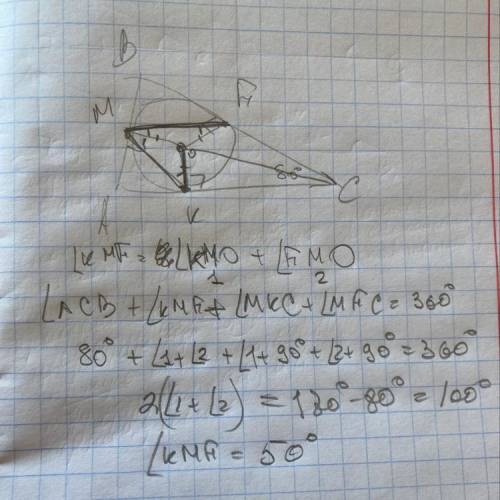 B
M F
O
80°
C
A K
∠KMF = ∠KMO + ∠FMO
1 2
∠ACB + ∠KMF + ∠MKC + ∠MFC = 360°
80° + ∠1+∠2 + ∠1+90° + ∠2+90° = 360°
2(∠1+∠2) = 180° - 80° = 100°
∠KMF = 50°